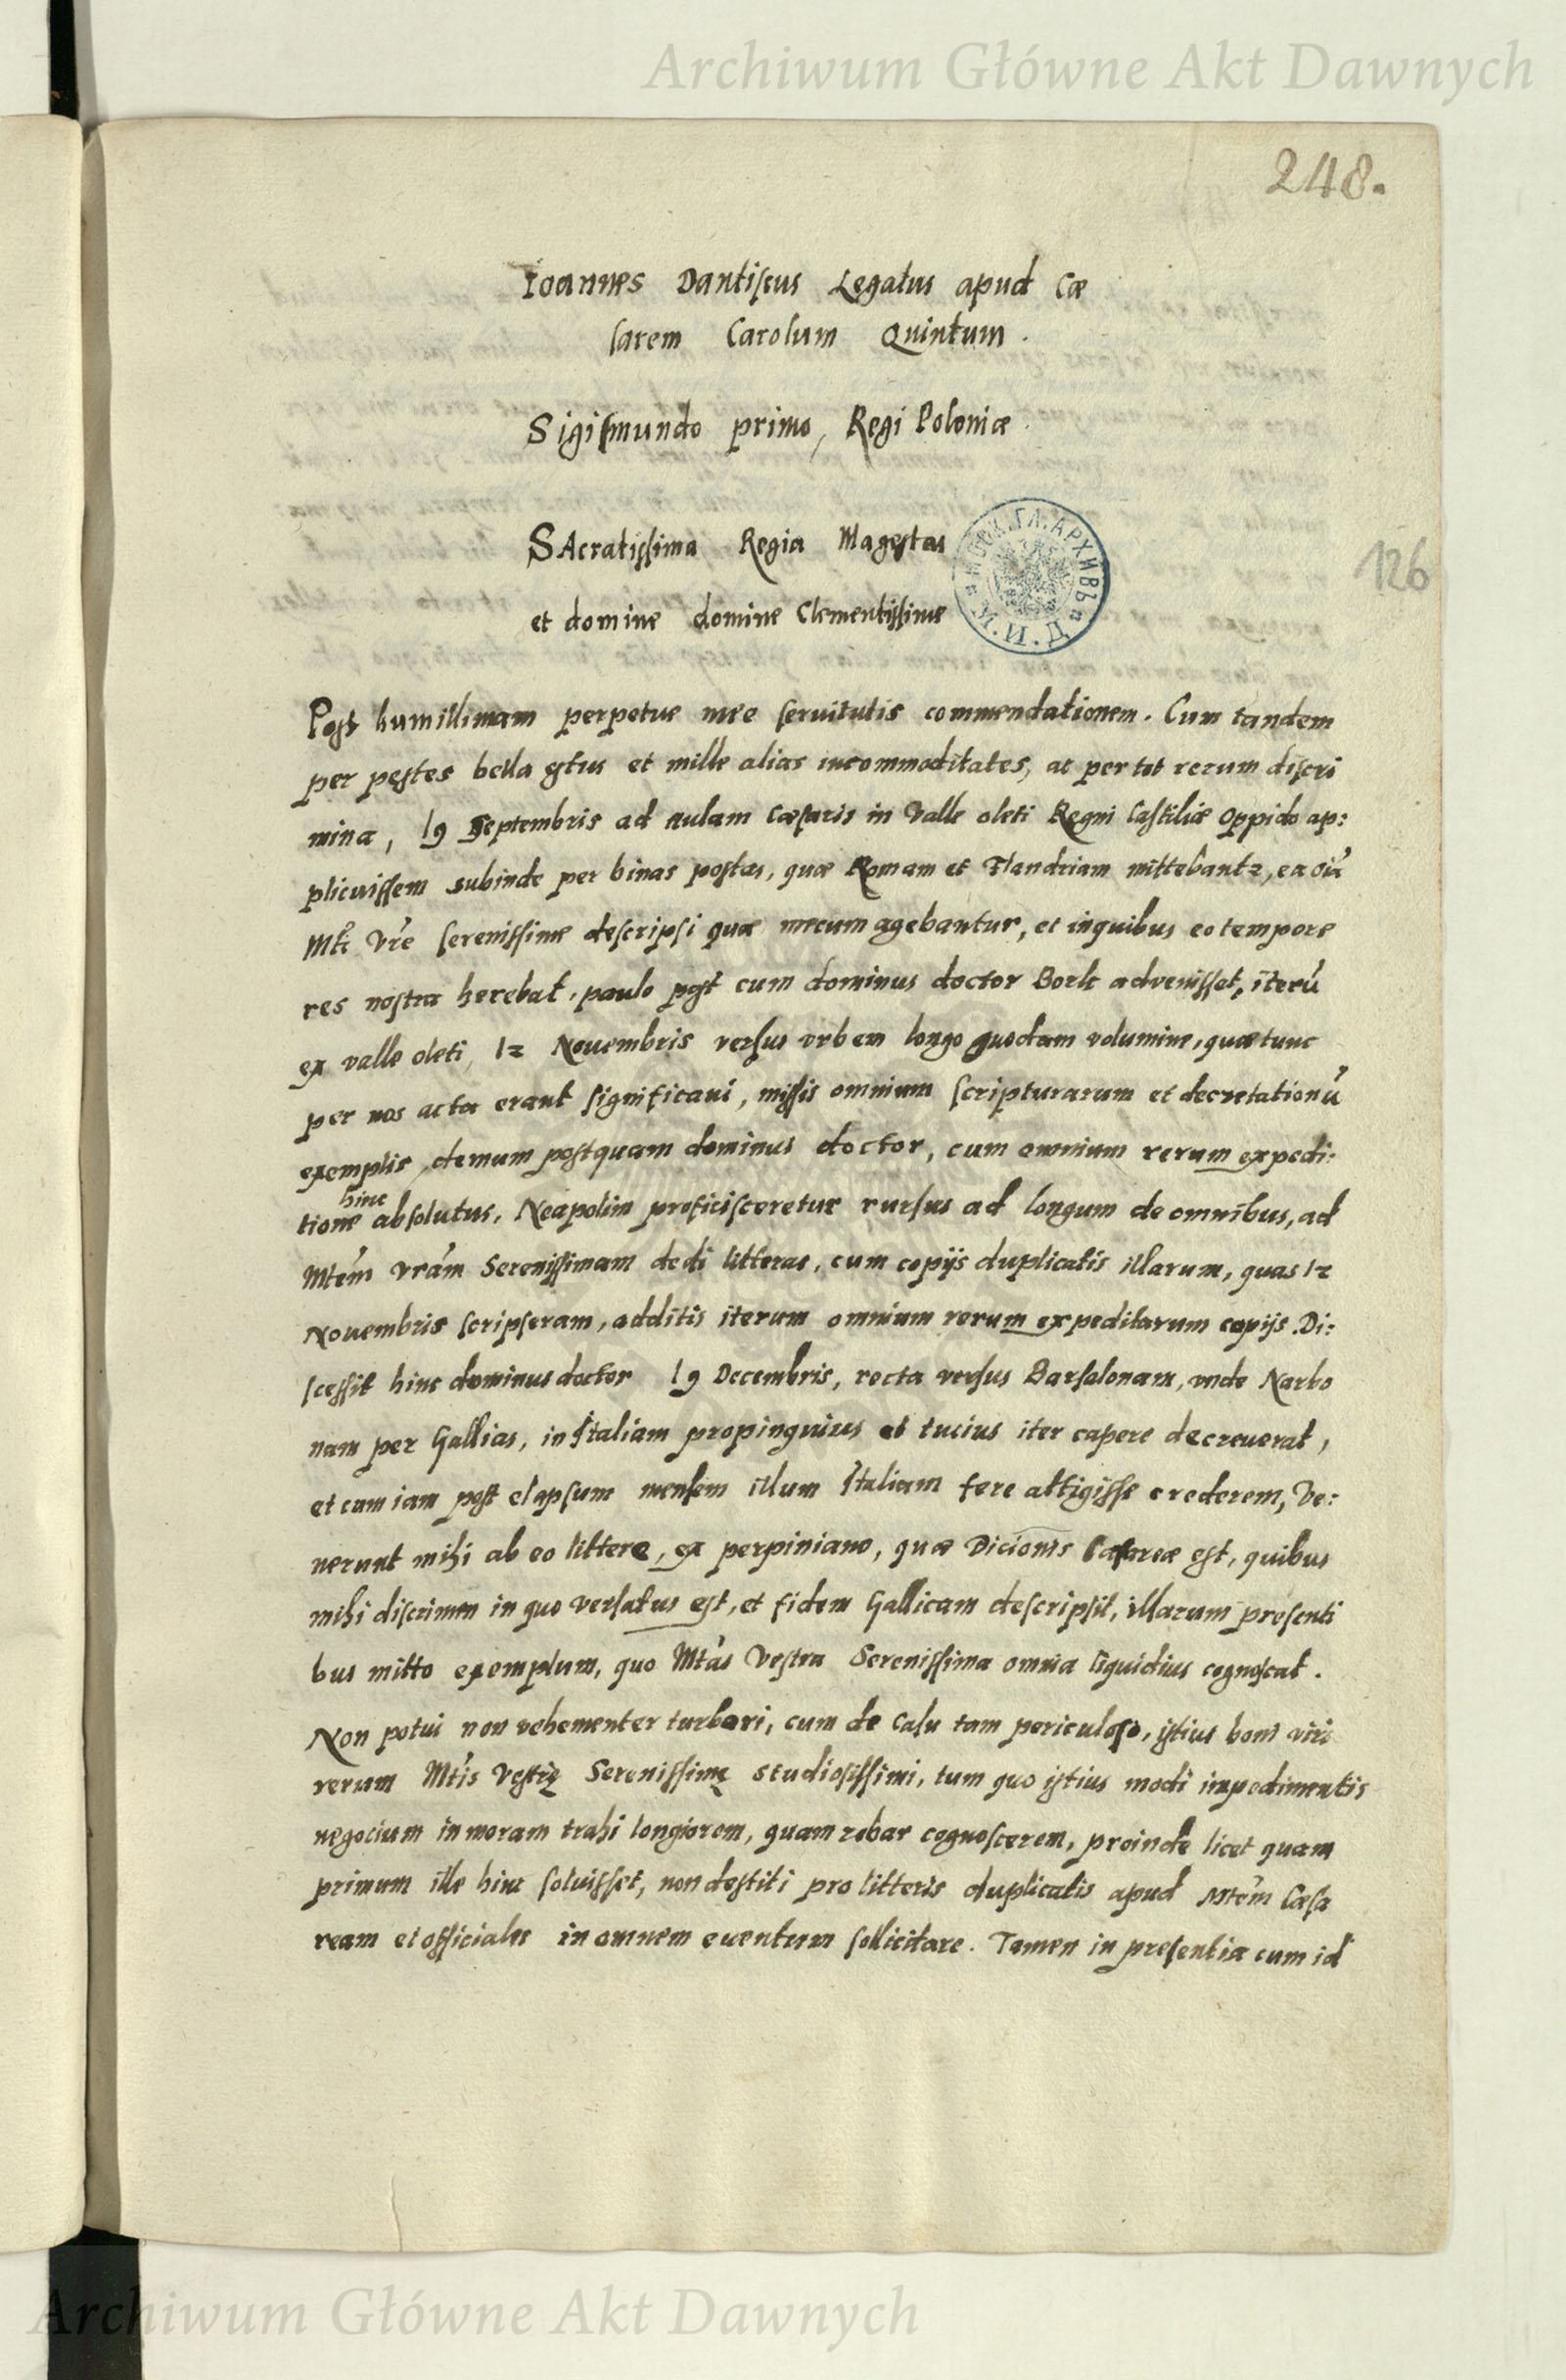 Archiwum Główne Akt Dawnych
248.
Ioannes Dantiscus Legatus apud Cæ
sarem Carolum Quintum.
Sigismundo primo, Regi Poloniæ.
SAcratissima Regia Magestas
et domine domine Clementissime
МОСК.ГЛ.АРХИВЪ М.И.Д.
126
Post humillimam perpetue mee servitutis commendationem. Cum tandem
per pestes bella estus et mille alias incommoditates, ac per tot rerum discri
mina, 19 Septembris ad aulam Cæsaris in Valle oleti Regni Castiliæ Oppido ap:
plicuissem subinde per binas postas, quæ Romam et Flandriam mittebant2, ea
Mti Vre serenissime descripsi quæ mecum agebantur, et in quibus eo tempore
res nostra herebat, paulo post cum dominus doctor Bork advenisset, iterū
ex valle oleti, 12 Novembris versus vrbem longo quodam volumine, quæ tunc
per nos acta erant significavi, missis omnium scripturarum et decretationū
exemplis, demum postquam dominus doctor, cum omnium rerum expedi:
hinc
tione absolutus, Neapolim proficisceretur rursus ad longum de omnibus, ad
Mtem vram Serenissimam dedi litteras, cum copijs duplicatis illarum, quas 12
Novembris scripseram, additis iterum omnium rerum expeditarum copijs. Di:
scessit hinc dominus doctor 19 Decembris, recta versus Barsalonam, vnde Narbo
nam per Gallias, in Italiam propinquius et tucius iter capere decreverat,
et cum iam post elapsum mensem illum Italiam fere attigisse crederem, Ve:
nerunt mihi ab eo littere, ex perpiniano, quæ Dicionis Cæsareæ est, quibus
mihi discrimen in quo versatus est, et fidem Gallicam descripsit, illarum presenti
bus mitto exemplum, quo Mtas Vestra Serenissima omnia liquidius cognoscat.
Non potui non vehementer turbari, cum de casu tam periculoso, istius boni viri
rerum Mtis Vestrę Serenissimę studiosissimi, tum quo istius modi impedimentis
negocium in moram trahi longiorem, quam rebar cognoscerem, proinde licet quam
primum ille hinc solvisset, non destiti pro litteris duplicatis apud Mtem Cæsa
ream et officiales in omnem eventum sollicitare. Tamen in presentia cum id
Archiwum Główne Akt Dawnych